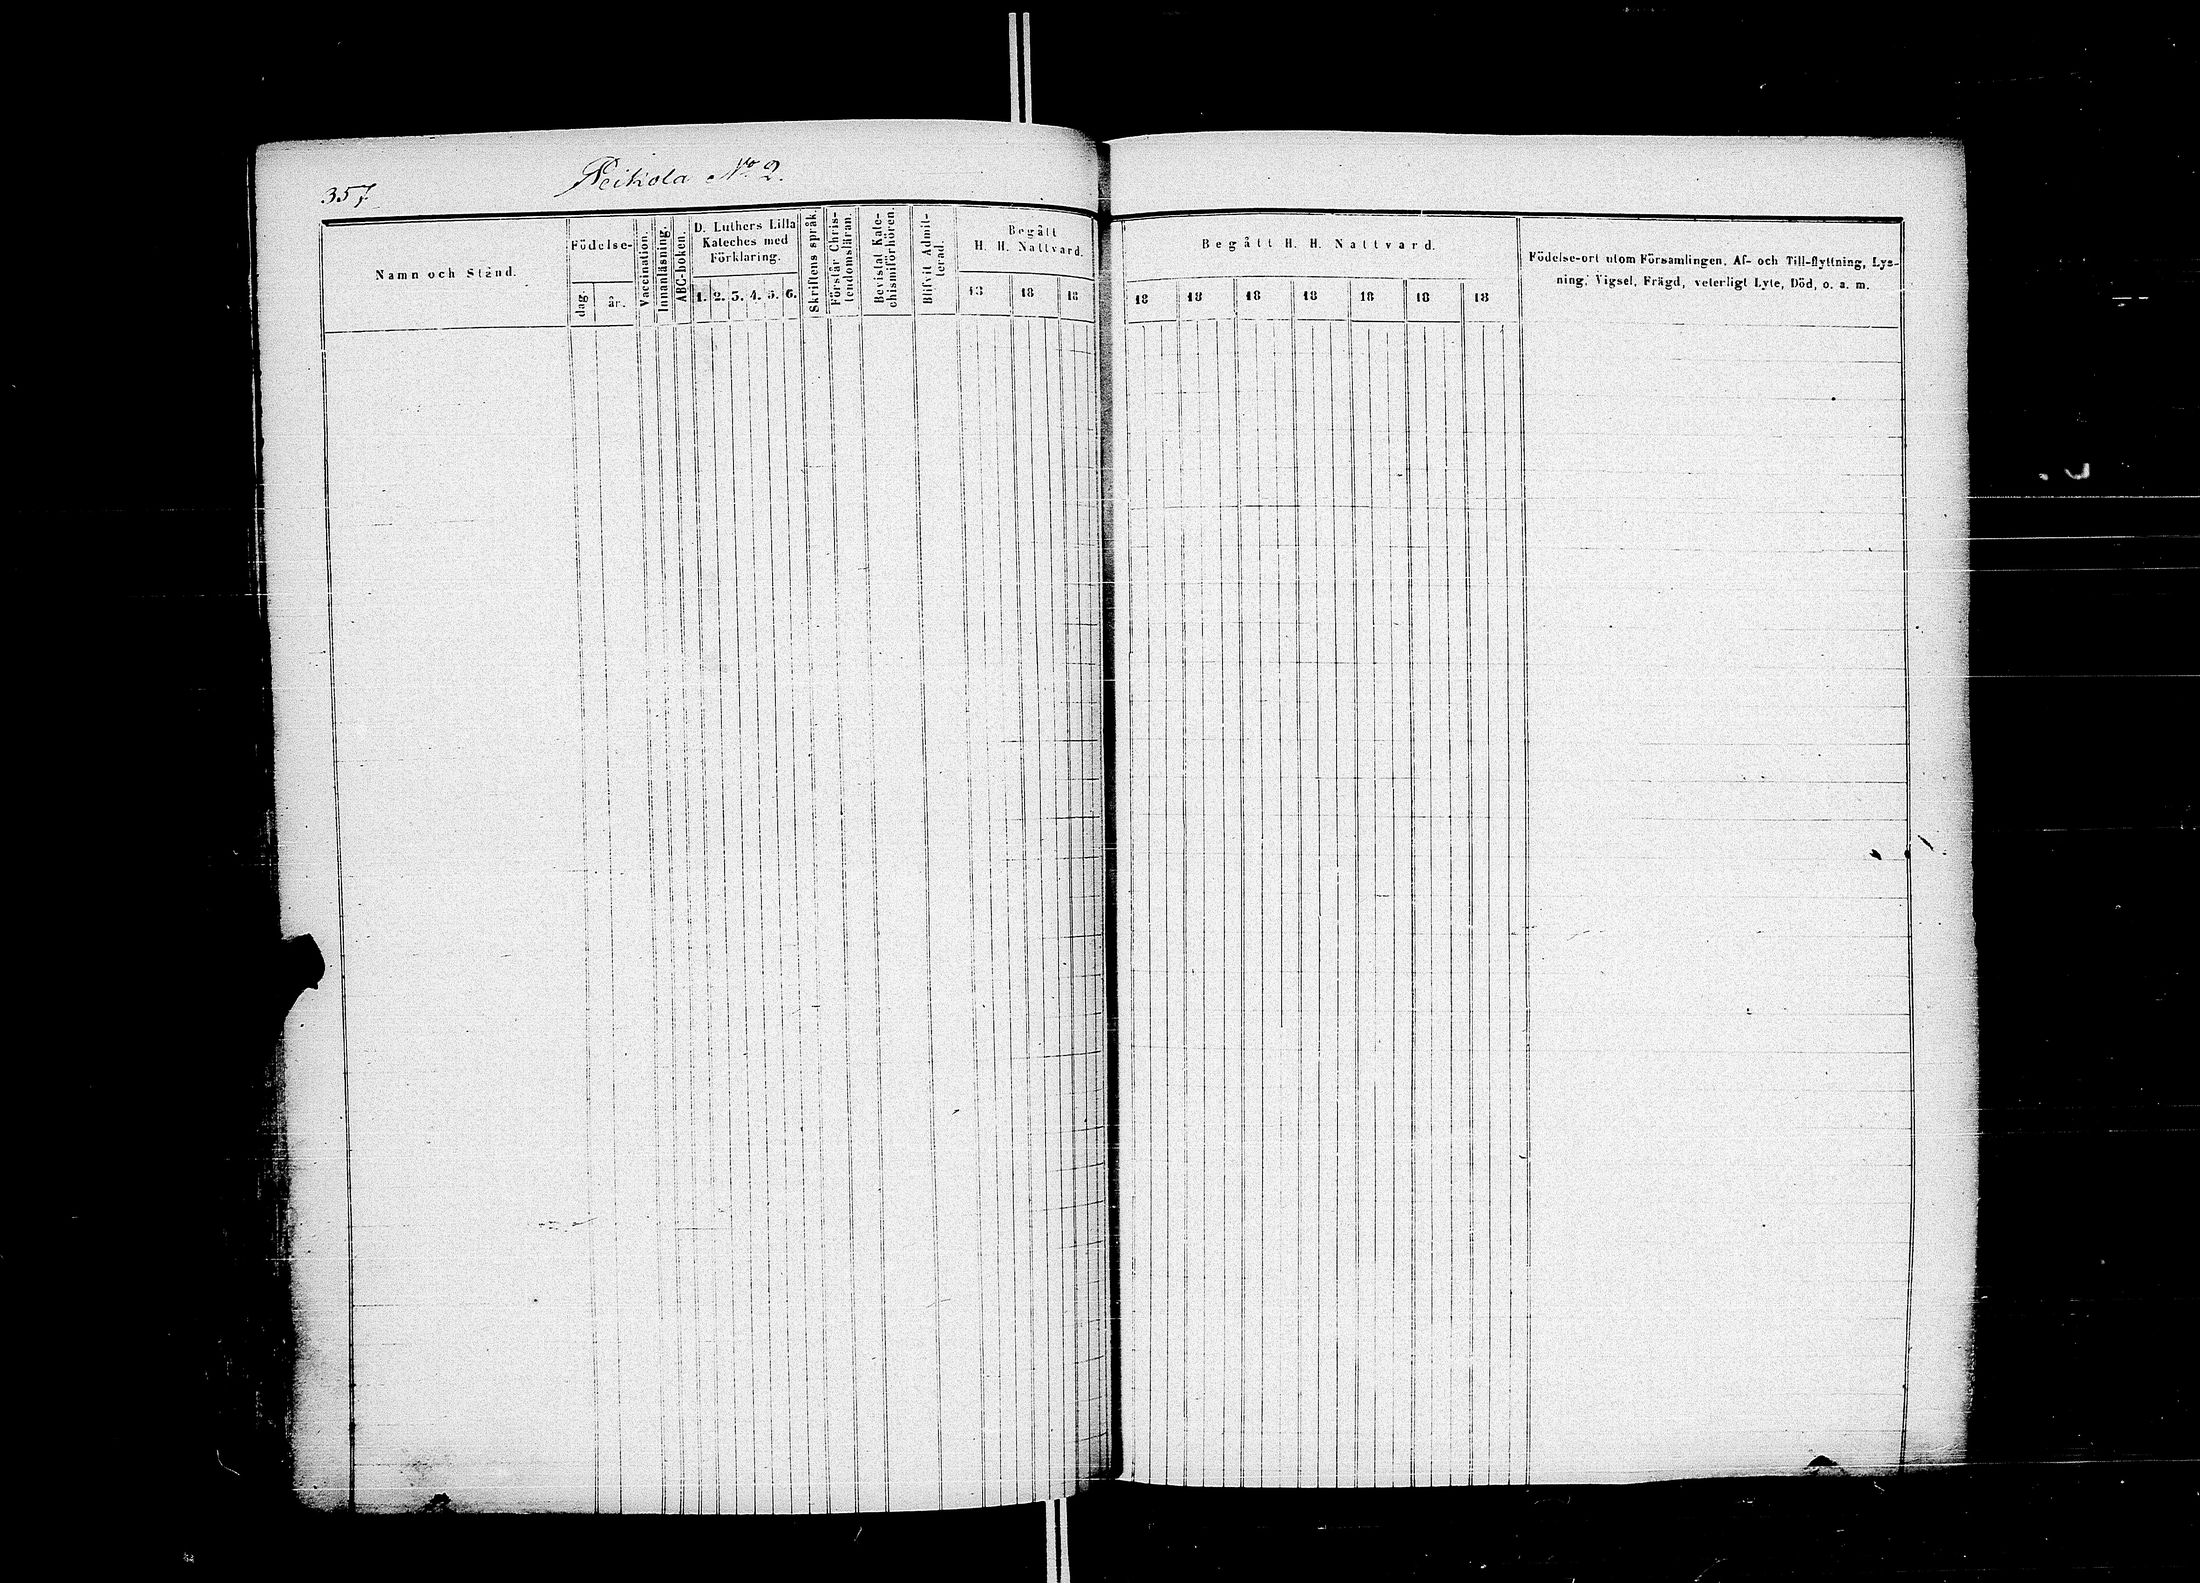 357
Peikola No 2.
Namn och Stånd.
Födelse-
dag.
år.
Vaccination.
Innanläsning.
ABC-boken.
D. Luthers Lilla
Kateches med
Förklaring.
1. 2. 3. 4. 5. 6.
Skriftens språk.
Förstår Chris-
tendomsläran.
Bevistat Kate-
chismiförhören.
Blifvit Admit-
terad.
Begått
H. H. Nattvard.
18 18 18
Begått H. H. Nattvard.
18 18 18 18 18 18 18
Födelse-ort utom Församlingen, Af- och Till-flyttning, Lys-
ning, Vigsel, Frägd, veterligt Lyte, Död, o. a. m.